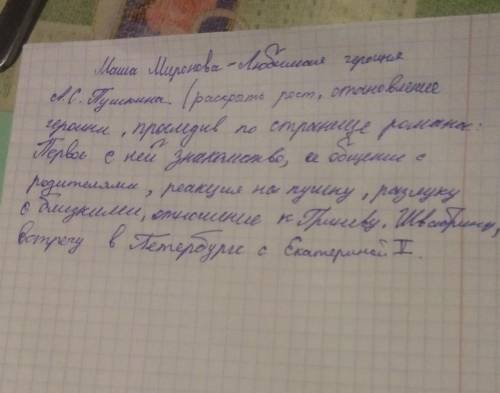 Маша Миронова - Любимая героиня
А.С. Пушкина. (раскрыть рост, становление
героини, проследив по странице романа:
Первое с ней знакомство, ее общение с
родителями, реакция на пушку, разлуку
с близкими, отношение к Гриневу, Швабрину,
встречу в Петербурге с Екатериной II.